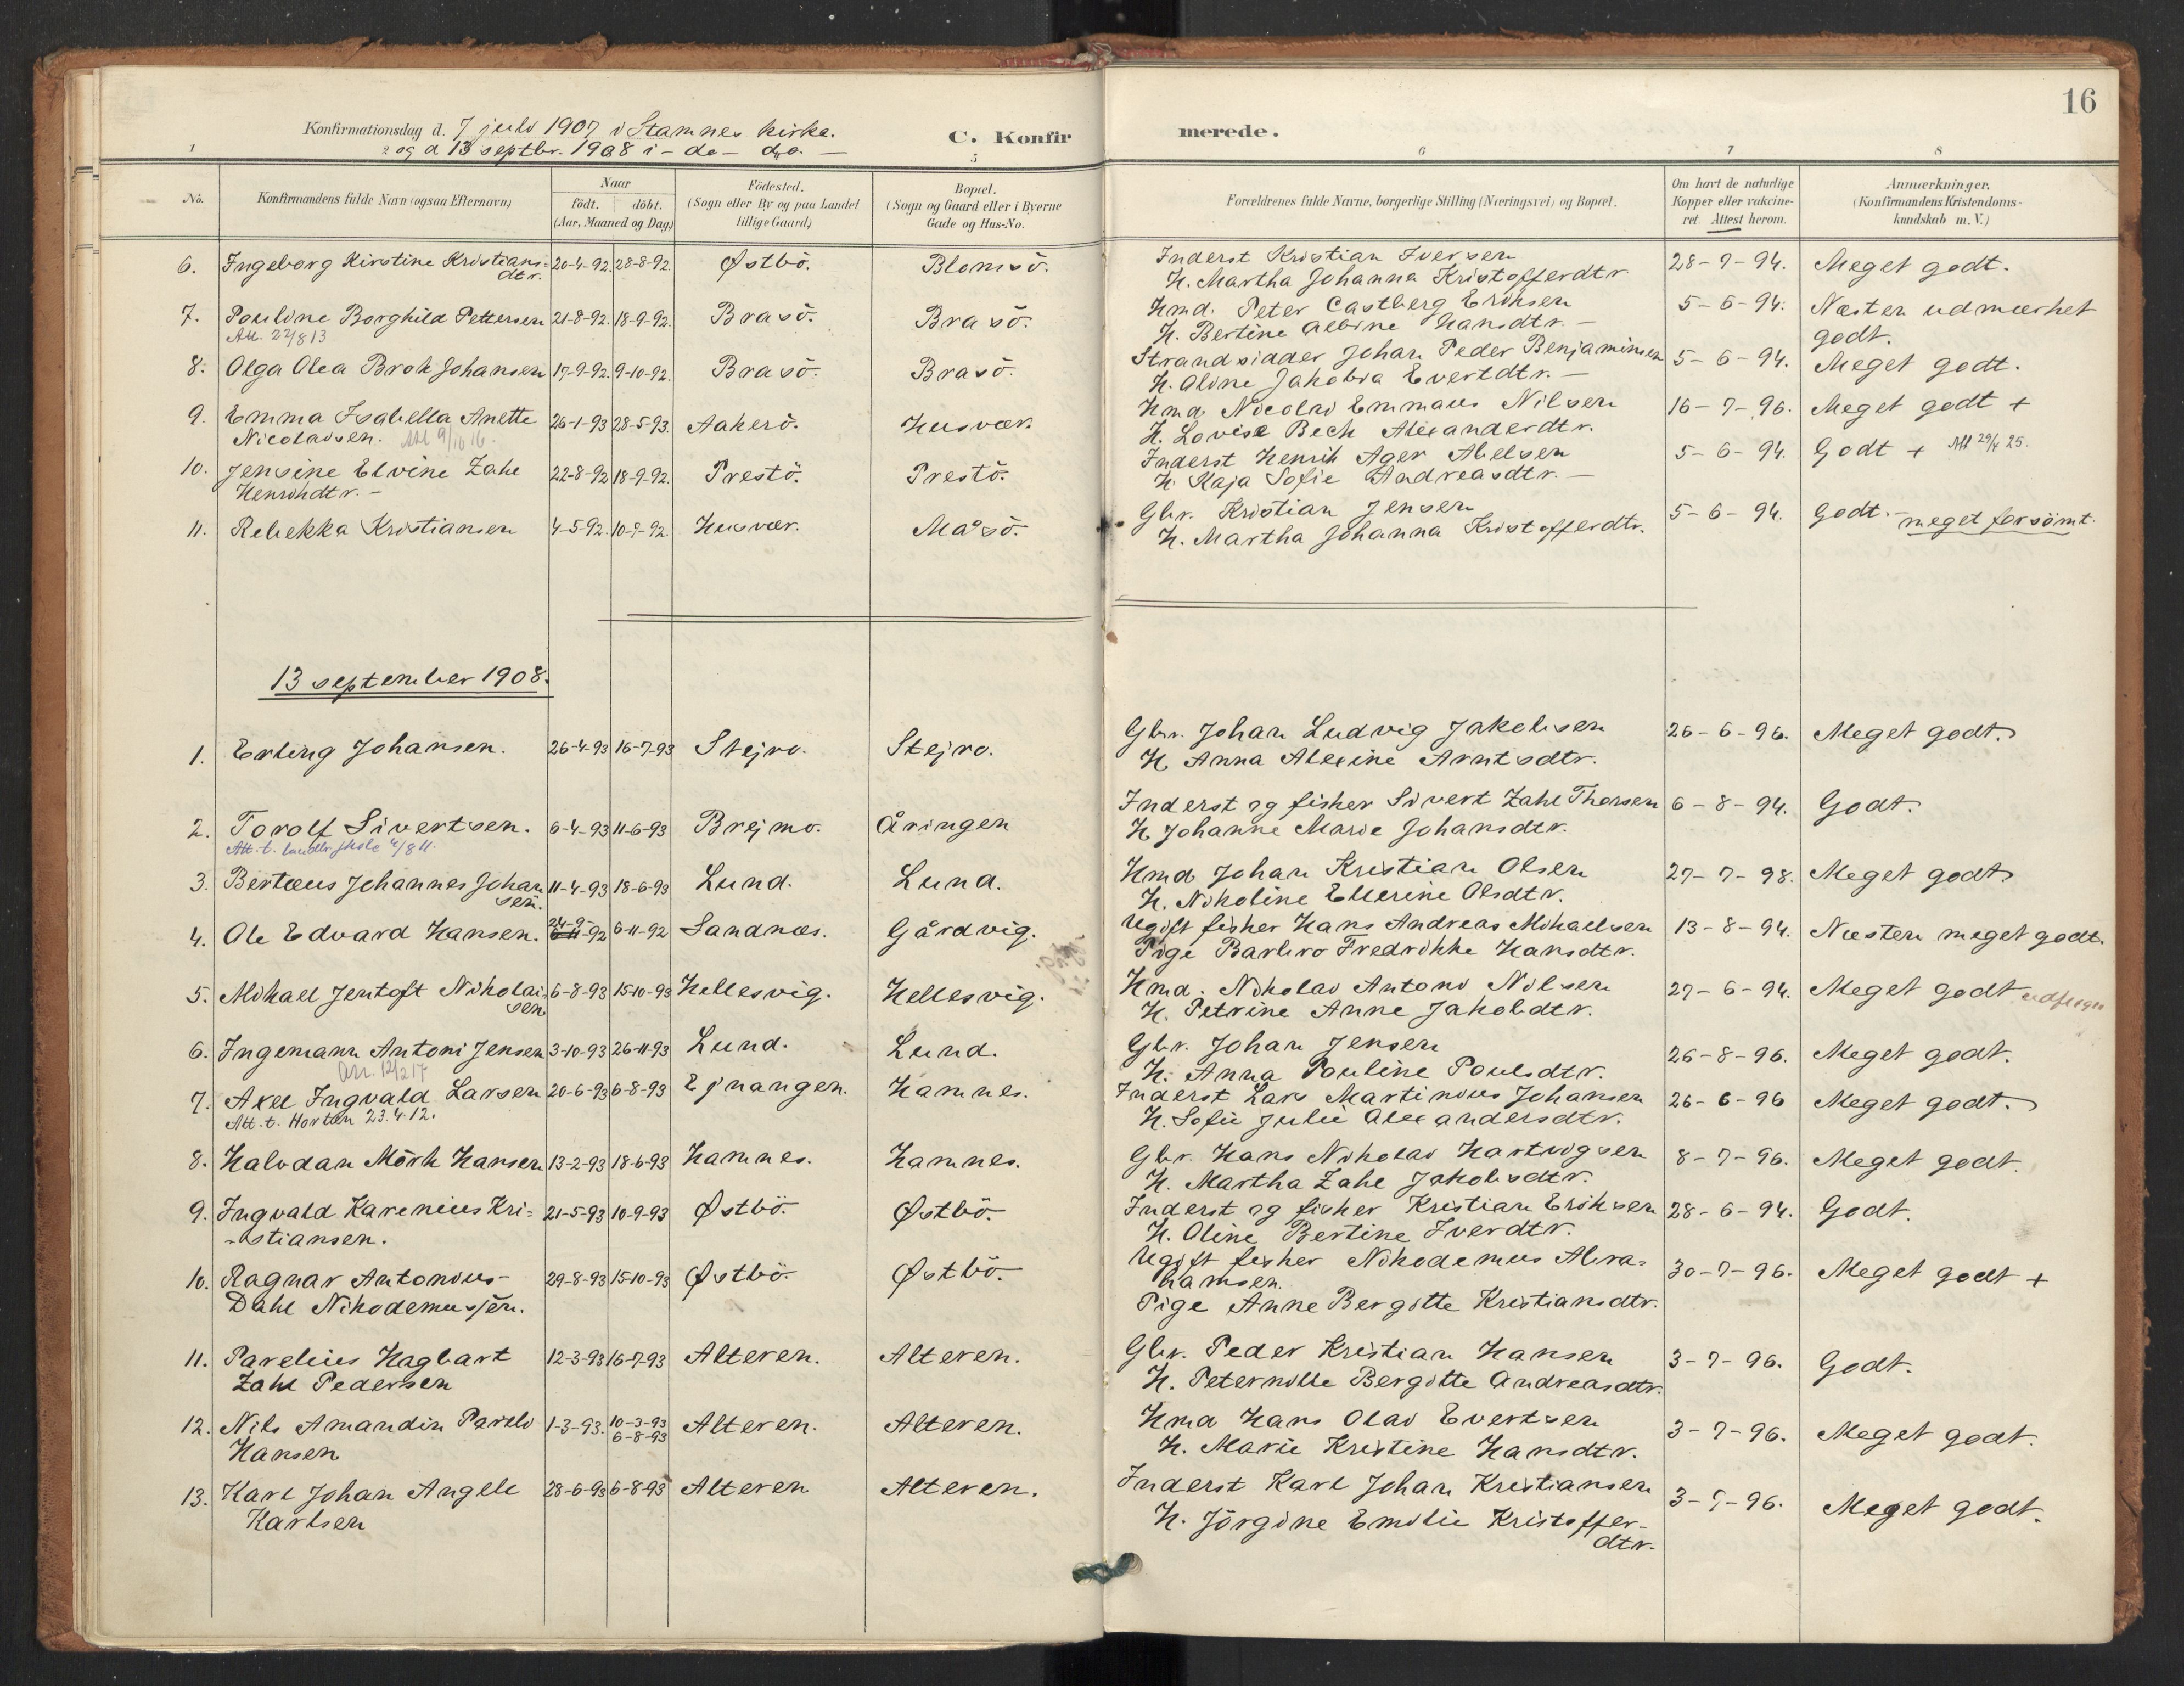 16
Konfirmationsdag d. 7 juli 1907 i Stamnes kirke.
og d 13 septbr. 1908 i - do - do. -
C. Konfirmerede.
1 2 5 6 7 8
No.
Konfirmandens fulde Navn (ogsaa Efternavn)
Naar
födt. döbt.
(Aar, Maaned og Dag)
Födested.
(Sogn eller By og paa Landet
tillige Gaard)
Bopæl.
(Sogn og Gaard eller i Byerne
Gade og Hus-No.
Forældrenes fulde Navne, borgerlige Stilling (Næringsvei) og Bopæl.
Om havt de naturlige
Kopper eller vakcine-
ret. Attest herom.
Anmærkninger.
(Konfirmandens Kristendoms-
kundskab m. V.)
6. Ingeborg Kirstine Kristians- 20-4-92. 28-8-92. Østbö. Blomsö. Inderst Kristian Iversen 28-7-94. Meget godt.
dtr. H. Martha Johanna Kristofferdtr
7. Pauline Borghild Pettersen 21-8-92. 18-9-92. Brasö. Brasö. Kmd. Peter Castberg Eriksen 5-6-94. Næsten udmærket
Att. 22/8 13 H. Bertine Albine Hansdtr. - godt.
8. Olga Olea Brok Johansen 17-9-92. 9-10-92. Brasö. Brasö. Strandsidder Johan Peder Benjaminsen 5-6-94. Meget godt.
H. Aline Jakobia Evertdtr. -
9. Emma Isabella Anette 26-1-93 28-5-93. Aakerö. Husvær. Kmd. Nicolai Emmaus Nilsen 16-7-96. Meget godt +
Nicolaisen. Att 9/10 16. H. Lovise Bech Alexanderdtr.
10. Jensine Elvine Zahl 22-8-92 18-9-92. Prestö. Prestö. Inderst Henrik Ager Abelsen 5-6-94. Godt + Att 29/4 25.
Henrikdtr. - H. Kaja Sofie Andreasdtr. -
11. Rebekka Kristiansen 4-5-92. 10-7-92. Husvær. Måsö. Gbr. Kristian Jensen 5-6-94. Godt. - meget forsömt.
H. Martha Johanna Kristofferdtr.
13 september 1908.
1. Erling Johansen. 26-4-93 16-7-93 Stejro. Stejro. Gbr. Johan Ludvig Jakobsen 26-6-96. Meget godt.
H. Anna Alexine Arntsdtr.
2. Torolf Sivertsen. 6-4-93 11-6-93 Brejmo. Åringen Inderst og fisker Sivert Zahl Thorsen 6-8-94. Godt.
Att. t. landbr. skole 4/8 11. H. Johanne Marie Johansdtr.
3. Bertæus Johannes Johan 11-4-93 18-6-93 Lund. Lund. Kmd Johan Kristian Olsen 27-7-98. Meget godt
sen. H. Nikoline Ellerine Olsdtr.
4. Ole Edvard Hansen. 24-9-92 6-11-92 Sandnæs. Gårdvig. Ugift fisker Hans Andreas Mikaelsen 13-8-94. Næsten meget godt.
Pige Barbro Fredrikke Hansdtr.
5. Mikael Jentoft Nikolai- 6-8-93 15-10-93 Hellesvig. Hellesvig. Kmd. Nikolai Antoni Nilsen 27-6-94. Meget godt
sen. H. Petrine Anne Jakobdtr.
6. Ingemann Antoni Jensen 3-10-93 26-11-93 Lund. Lund. Gbr. Johan Jensen 26-8-96. Meget godt.
12/2 17 H. Anna Pauline Poulsdtr.
7. Axel Ingvald Larsen 20-6-93 6-8-93 Ejnangen. Hamnes. Inderst Lars Martinius Johansen 26-6-96 Meget godt.
Att. t. Horten 23.4.12. H. Sofie Julie Alexandersdtr.
8. Halvdan Mörk Hansen 13-2-93 18-6-93 Hamnes. Hamnes. Gbr. Hans Nikolai Hartvigsen 8-7-96. Meget godt.
H. Martha Zahl Jakobsdtr.
9. Ingvald Karenius Kri- 21-5-93 10-9-93 Østbö. Østbö. Inderst og fisker Kristian Eriksen 28-6-94. Godt.
-stiansen. H. Oline Bertine Iverdtr.
10. Ragnar Antonius- 29-8-93 15-10-93 Østbö. Østbö. Ugift fisker Nikodemus Abra- 30-7-96. Meget godt +
Dahl Nikodemussen. hamsen.
Pige Anne Bergitte Kristiansdtr.
11. Parelius Hagbart 12-3-93 16-7-93 Alteren. Alteren. Gbr. Peder Kristian Hansen 3-7-96. Godt.
Zahl Pedersen H. Peternille Bergitte Andreasdtr.
12. Nils Amandin Pareli 1-3-93. 10-3-93 Alteren. Alteren. Kmd Hans Olai Evertsen 3-7-96. Meget godt.
Hansen 6-8-93 H. Marie Kristine Hansdtr.
13. Karl Johan Angell 28-6-93 6-8-93 Alteren Alteren. Inderst Karl Johan Kristiansen 3-7-96. Meget godt.
Karlsen H. Jörgine Emilie Kristoffer-
dtr.